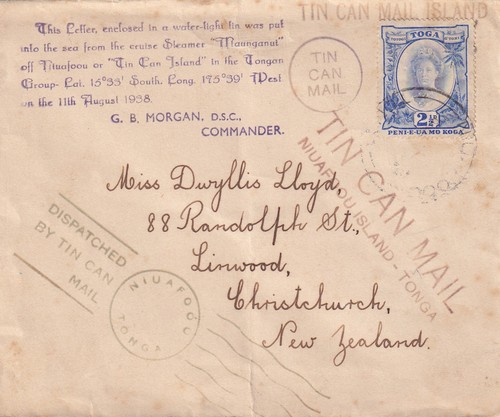 TIN CAN MAIL ISLAND
This Letter, enclosed in a water-tight tin was put
into the sea from the cruise Steamer "Maunganui"
off Niuafoou or "Tin Can Island" in the Tongan
Group- Lat. 15°33' South, Long. 175°39' West
on the 11th August 1938.
G. B. MORGAN, D.S.C.,
COMMANDER.
TIN
CAN
MAIL
TOGA
2½
PENI-E-UA MO KOGA
TIN CAN MAIL
NIUAFOOU ISLAND - TONGA
Miss Dwyllis Lloyd,
88 Randolph St.,
Linwood,
Christchurch,
New Zealand.
DISPATCHED
BY TIN CAN
MAIL
NIUAFOOU
TONGA